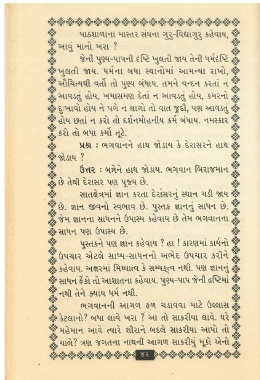 પાઠશાળાના માસ્તર સંઘના ગુરુ-વિદ્યાગુરુ કહેવાય,
આવું માનો ખરા ?
જેની પુણ્ય-પાપની દૃષ્ટિ ખુલતી જાય તેની ધર્મદૃષ્ટિ
ખુલતી જાય. ધર્મના બધા સ્થાનોમાં આમન્યા રાખો,
ઔચિત્યથી વર્તો તો પુણ્ય બંધાય. તમને વન્દન કરતાં ન
આવડતું હોય, ખમાસમણ દેતાં ન આવડતું હોય, કમરનો
દુઃખાવો હોય ને પગે ન લાગો તો વાત જુદી, પણ આવડતું
હોય છતાં ન કરો તો દર્શનમોહનીય કર્મ બંધાય. નમસ્કાર
કરો તો બધા કર્મો તૂટે.
પ્રશ્ન : ભગવાનને હાથ જોડાય કે દેરાસરને હાથ
જોડાય ?
ઉત્તર : બંનેને હાથ જોડાય. ભગવાન બિરાજમાન
છે તેથી દેરાસર પણ પૂજ્ય છે.
સાતક્ષેત્રમાં જ્ઞાન કરતા દેરાસરનું સ્થાન ચડી જાય
છે. જ્ઞાન જીવનો સ્વભાવ છે. પુસ્તક જ્ઞાનનું સાધન છે.
જેમ જ્ઞાનના સાધનને ઉપાસ્ય કહેવાય છે તેમ ભગવાનના
સાધન પણ ઉપાસ્ય છે.
પુસ્તકને પણ જ્ઞાન કહેવાય ? હા ! કારણમાં કાર્યનો
ઉપચાર એટલે સાધ્ય-સાધનનો અભેદ ઉપચાર કરીને
કહેવાય. અક્ષરમાં મિથ્યાત્વ કે સમ્યક્ત્વ નથી. પણ જ્ઞાનનું
સાધન ફેંકો તો આશાતના કહેવાય. પુણ્ય-પાપ જેની દૃષ્ટિમાં
નથી તેને ક્યાંય ધર્મ નથી.
ભગવાનની આગળ ફળ ચડાવવા માટે ઉલ્લાસ
કેટલાનો? બધા લાવે ખરા ? આ તો સાકરીયા લાવે. ઘરે
મહેમાન આવે ત્યારે શીરાને બદલે સાકરીયા આપો તો
ચાલે? ત્રણ જગતના નાથની આગળ સાકરીયું મૂકો એનો
૪૨